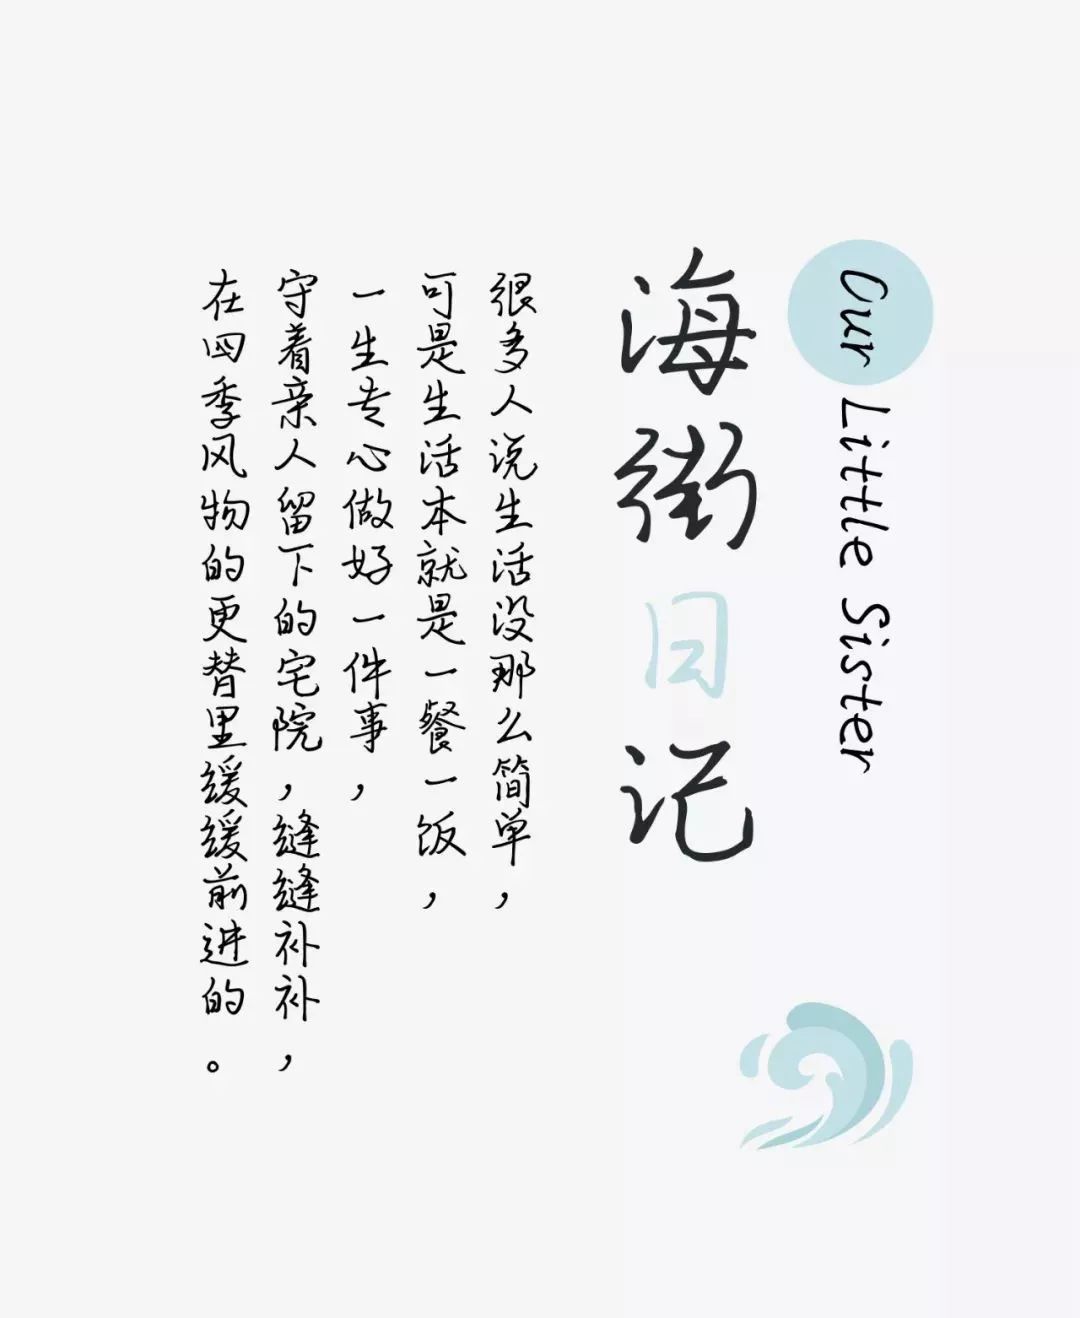 Our Little Sister
海街日记
很多人说生活没那么简单，
可是生活本就是一餐一饭，
一生专心做好一件事，
守着亲人留下的宅院，缝缝补补，
在四季风物的更替里缓缓前进的。